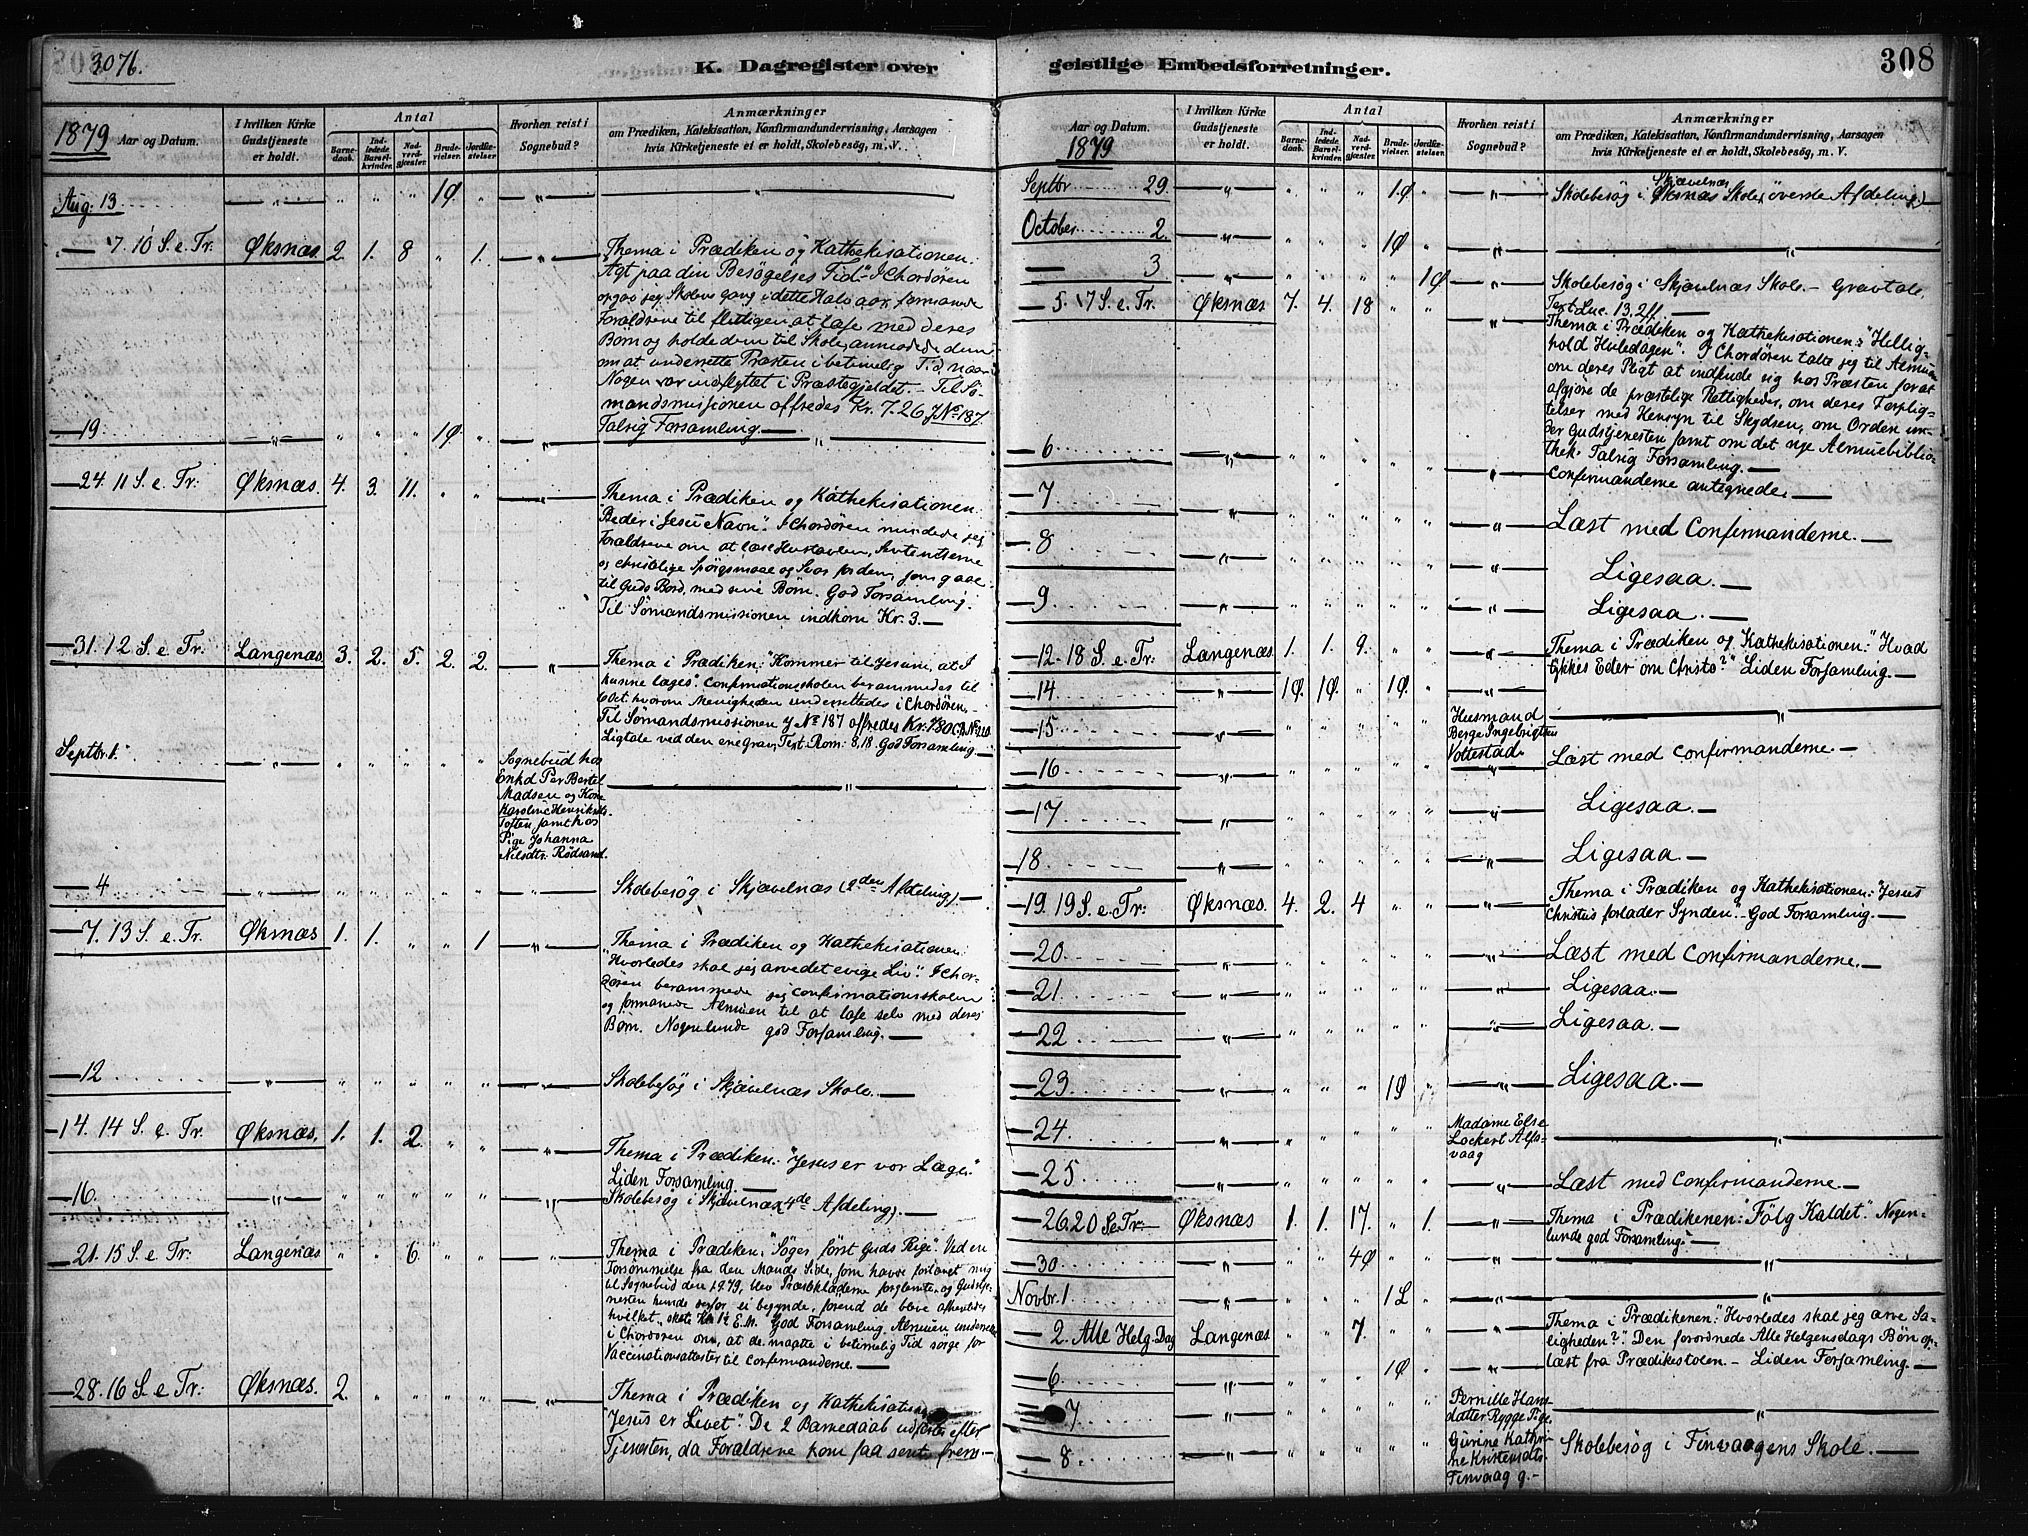 307b.
K. Dagregister over geistlige Embedsforretninger.
308
1879 Aar og Datum.
I hvilken Kirke Gudstjeneste er holdt.
Antal
Barnedaab.
Indledede Barselkvinder.
Nadverdgjester.
Brudevielser.
Jordfæstelser.
Hvorhen reist i Sognebud?
Anmærkninger
om Prædiken, Katekisation, Konfirmandundervisning, Aarsagen
hvis Kirketjeneste ei er holdt, Skolebesøg, m. V.
Aug: 13 — " — " " " 1Ø " — " — — " —
— 17. 10 S. e. Tr. Øksnæs. 2. 1. 8 " 1. — " — Thema i Prædiken og Kathekisationen:
"Agt paa din Besøgelses Tid". I Chordøren
opgav jeg Skolens gang i dette Halvaar, formanede
Forældrene til flittigen at læse med deres
Børn og holde dem til Skole, anmodede dem
om at underrette Præsten i betimelig Tid, naar
Nogen var indflyttet i Præstegjeldet. Til Sø-
mandsmissionen offredes Kr. 7.26 J No 187.
Talrig Forsamling. —
— 19 — " — " " " 1Ø " — " — — " —
— 24. 11 S. e. Tr: Øksnæs. 4. 3. 11. " " — " — Thema i Prædiken og Kathekisationen:
"Beder i Jesu Navn". I Chordøren mindede jeg
Forældrene om at læse Hustavlen,
og christelige Spørgsmaal og Svar for dem, som gaae
til Guds Bord, med sine Børn. God Forsamling.
Til Sømandsmissionen indkom Kr. 3. —
— 31. 12 S. e. Tr. Langenæs. 3. 2. 5. 2. 2. — " — Thema i Prædiken: "Kommer til Jesum, at I
kunne læges". Confirmationsskolen berammedes til
hvorom Menigheden underrettedes i Chordøren.
Til Sømandsmissionen J No 187 offredes Kr.
Ligtale ved den ene Grav, Text: Rom: 8,18. God Forsamling. —
Septbr. 1. — " — " " " " " Sognebud hos
Enkd Per Bertel
Madsen og Kone
Karoline Henriksdt.
Toften samt hos
Pige Johanna
Nilsdtr. Rødsand. — " —
— 4 — " — " " " " " — " — Skolebesøg i Skjævelnæs (2den Afdeling). —
— 7. 13 S. e. Tr. Øksnæs 1. 1. " " 1 — " — Thema i Prædiken og Kathekisationen:
"Hvorledes skal jeg arve det evige Liv". I Chor-
døren berammede jeg Confirmationsskolen
og formanede Almuen til at læse selv med deres
Børn. Nogenlunde god Forsamling. —
— 12 — " — " " " " " — " — Skolebesøg i Skjævelnæs Skole. —
— 14. 14 S. e. Tr. Øksnæs. 1. 1. 2. " " — " — Thema i Prædiken: "Jesus er vor Læge."
Liden Forsamling —
— 16. — " — " " " " " — " — Skolebesøg i Skjævelnæs (4de Afdeling). —
— 21. 15 S. e. Tr: Langenæs " " 6. " " — " — Thema i Prædiken: "Søger først Guds Rige". Ved en
Forsømmelse fra den Mands Side, som havde fortøiet mig
til Sognebud den 1.9.79, blev Præsteklæderne forglemte, og Gudstje-
nesten kunde derfor ei begynde, førend de bleve afhentede,
hvilket skete Kl. 1½ E.M. God Forsamling. Almuen underrettet
i Chordøren om, at de maatte i betimelig Tid sørge for
Vaccinationsattester til Confirmanderne. —
— 28. 16 S. e. Tr: Øksnæs. 2. " " " " — " — Thema i Prædiken og Kathekisationen
"Jesus er Livet". De 2 Barnedaab udførtes efter
Tjenesten, da Forældrene kom saa sent frem —
Aar og Datum. 1879
I hvilken Kirke Gudstjeneste er holdt.
Antal
Barnedaab.
Indledede Barselkvinder.
Nadverdgjester.
Brudevielser.
Jordfæstelser.
Hvorhen reist i Sognebud?
Anmærkninger
om Prædiken, Katekisation, Konfirmandundervisning, Aarsagen
hvis Kirketjeneste ei er holdt, Skolebesøg, m. V.
Septbr 29. — " — " " " 1Ø " — " — Skolebesøg i Skjævelnæs Øksnæs Skole (øverste Afdeling) —
October 2. — " — " " " 1Ø " — " — — " —
— 3 — " — " " " " 1Ø — " — Skolebesøg i Skjævelnæs Skole. — Gravtale,
Text Luc. 13.2ff. —
— 5. 17 S. e. Tr. Øksnæs 7. 4. 18 " " — " — Thema i Prædiken og Kathekisationen: "Hellig-
hold Hviledagen". I Chordøren talte jeg til Almuen
om deres Pligt at indfinde sig hos Præsten for at
afgjøre de præstelige Rettigheder, om deres Forplig-
telser med Hensyn til Skydsen, om Orden un-
der Gudstjenesten samt om det nye Almuebiblio-
thek. Talrig Forsamling. —
— 6 — " — " " " " " — " — Confirmanderne antegnede. —
— 7 — " — " " " " " — " — Læst med Confirmanderne. —
— 8 — " — " " " " " — " — Ligesaa. —
— 9 — " — " " " " " — " — Ligesaa. —
— 12. 18 S. e. Tr: Langenæs 1. 1. 9. " " — " — Thema i Prædiken og Kathekisationen: "Hvad
tykkes Eder om Christo?" Liden Forsamling. —
— 14 — " — 1Ø. 1Ø. " 1Ø. " — " — — " —
— 15 — " — " " " " " Husmand
Berge Ingebrigtsen
Vottestad. Læst med Confirmanderne. —
— 16 — " — " " " " " — " —
— 17 — " — " " " " " — " — Ligesaa. —
— 18. — " — " " " " " — " — Ligesaa —
— 19. 19 S. e. Tr: Øksnæs. 4. 2. 4 " " — " — Thema i Prædiken og Kathekisationen: "Jesus
Christus forlader Synden". God Forsamling. —
— 20 — " — " " " " " — " — Læst med Confirmanderne. —
— 21. — " — " " " " " — " — Ligesaa. —
— 22 — " — " " " " " — " — Ligesaa. —
— 23. — " — " " " 1Ø " — " — Ligesaa. —
— 24. — " — " " " " " Madame Else
Lockert Alfs-
vaag — " —
— 25 — " — " " " " " — " — Læst med Confirmanderne —
— 26. 20 S. e. Tr: Øksnæs 1. 1. 17. " 1. — " — Thema i Prædikenen: "Følg Kaldet". Nogen-
lunde god Forsamling. —
— 30 — " — " " 4Ø " " — " — — " —
Novbr. 1 — " — " " " 1L " — " —
— 2. Alle Helg. Dag Langenæs " " 7. " " — " — Thema i Prædikenen: "Hvorledes skal jeg arve Sa-
ligheden?". Den forordnede Alle Helgensdags Bøn op-
læst fra Prædikestolen. — Liden Forsamling. —
— 6 — " — " " " 1Ø " — " —
— 7 — " — " " " " " Pernille Hans-
datter Rygge Pige. — " —
— 8. — " — " " " " " Gurine Kathri-
ne Kristensdtr.
Finvaag g. — Skolebesøg i Finvaagens Skole. —